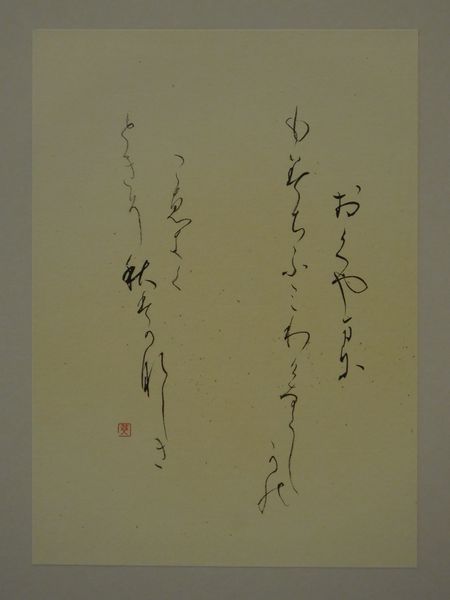 おくやまに
もみちふみわけなくしかの
こゑきく
ときそ秋はかなしき